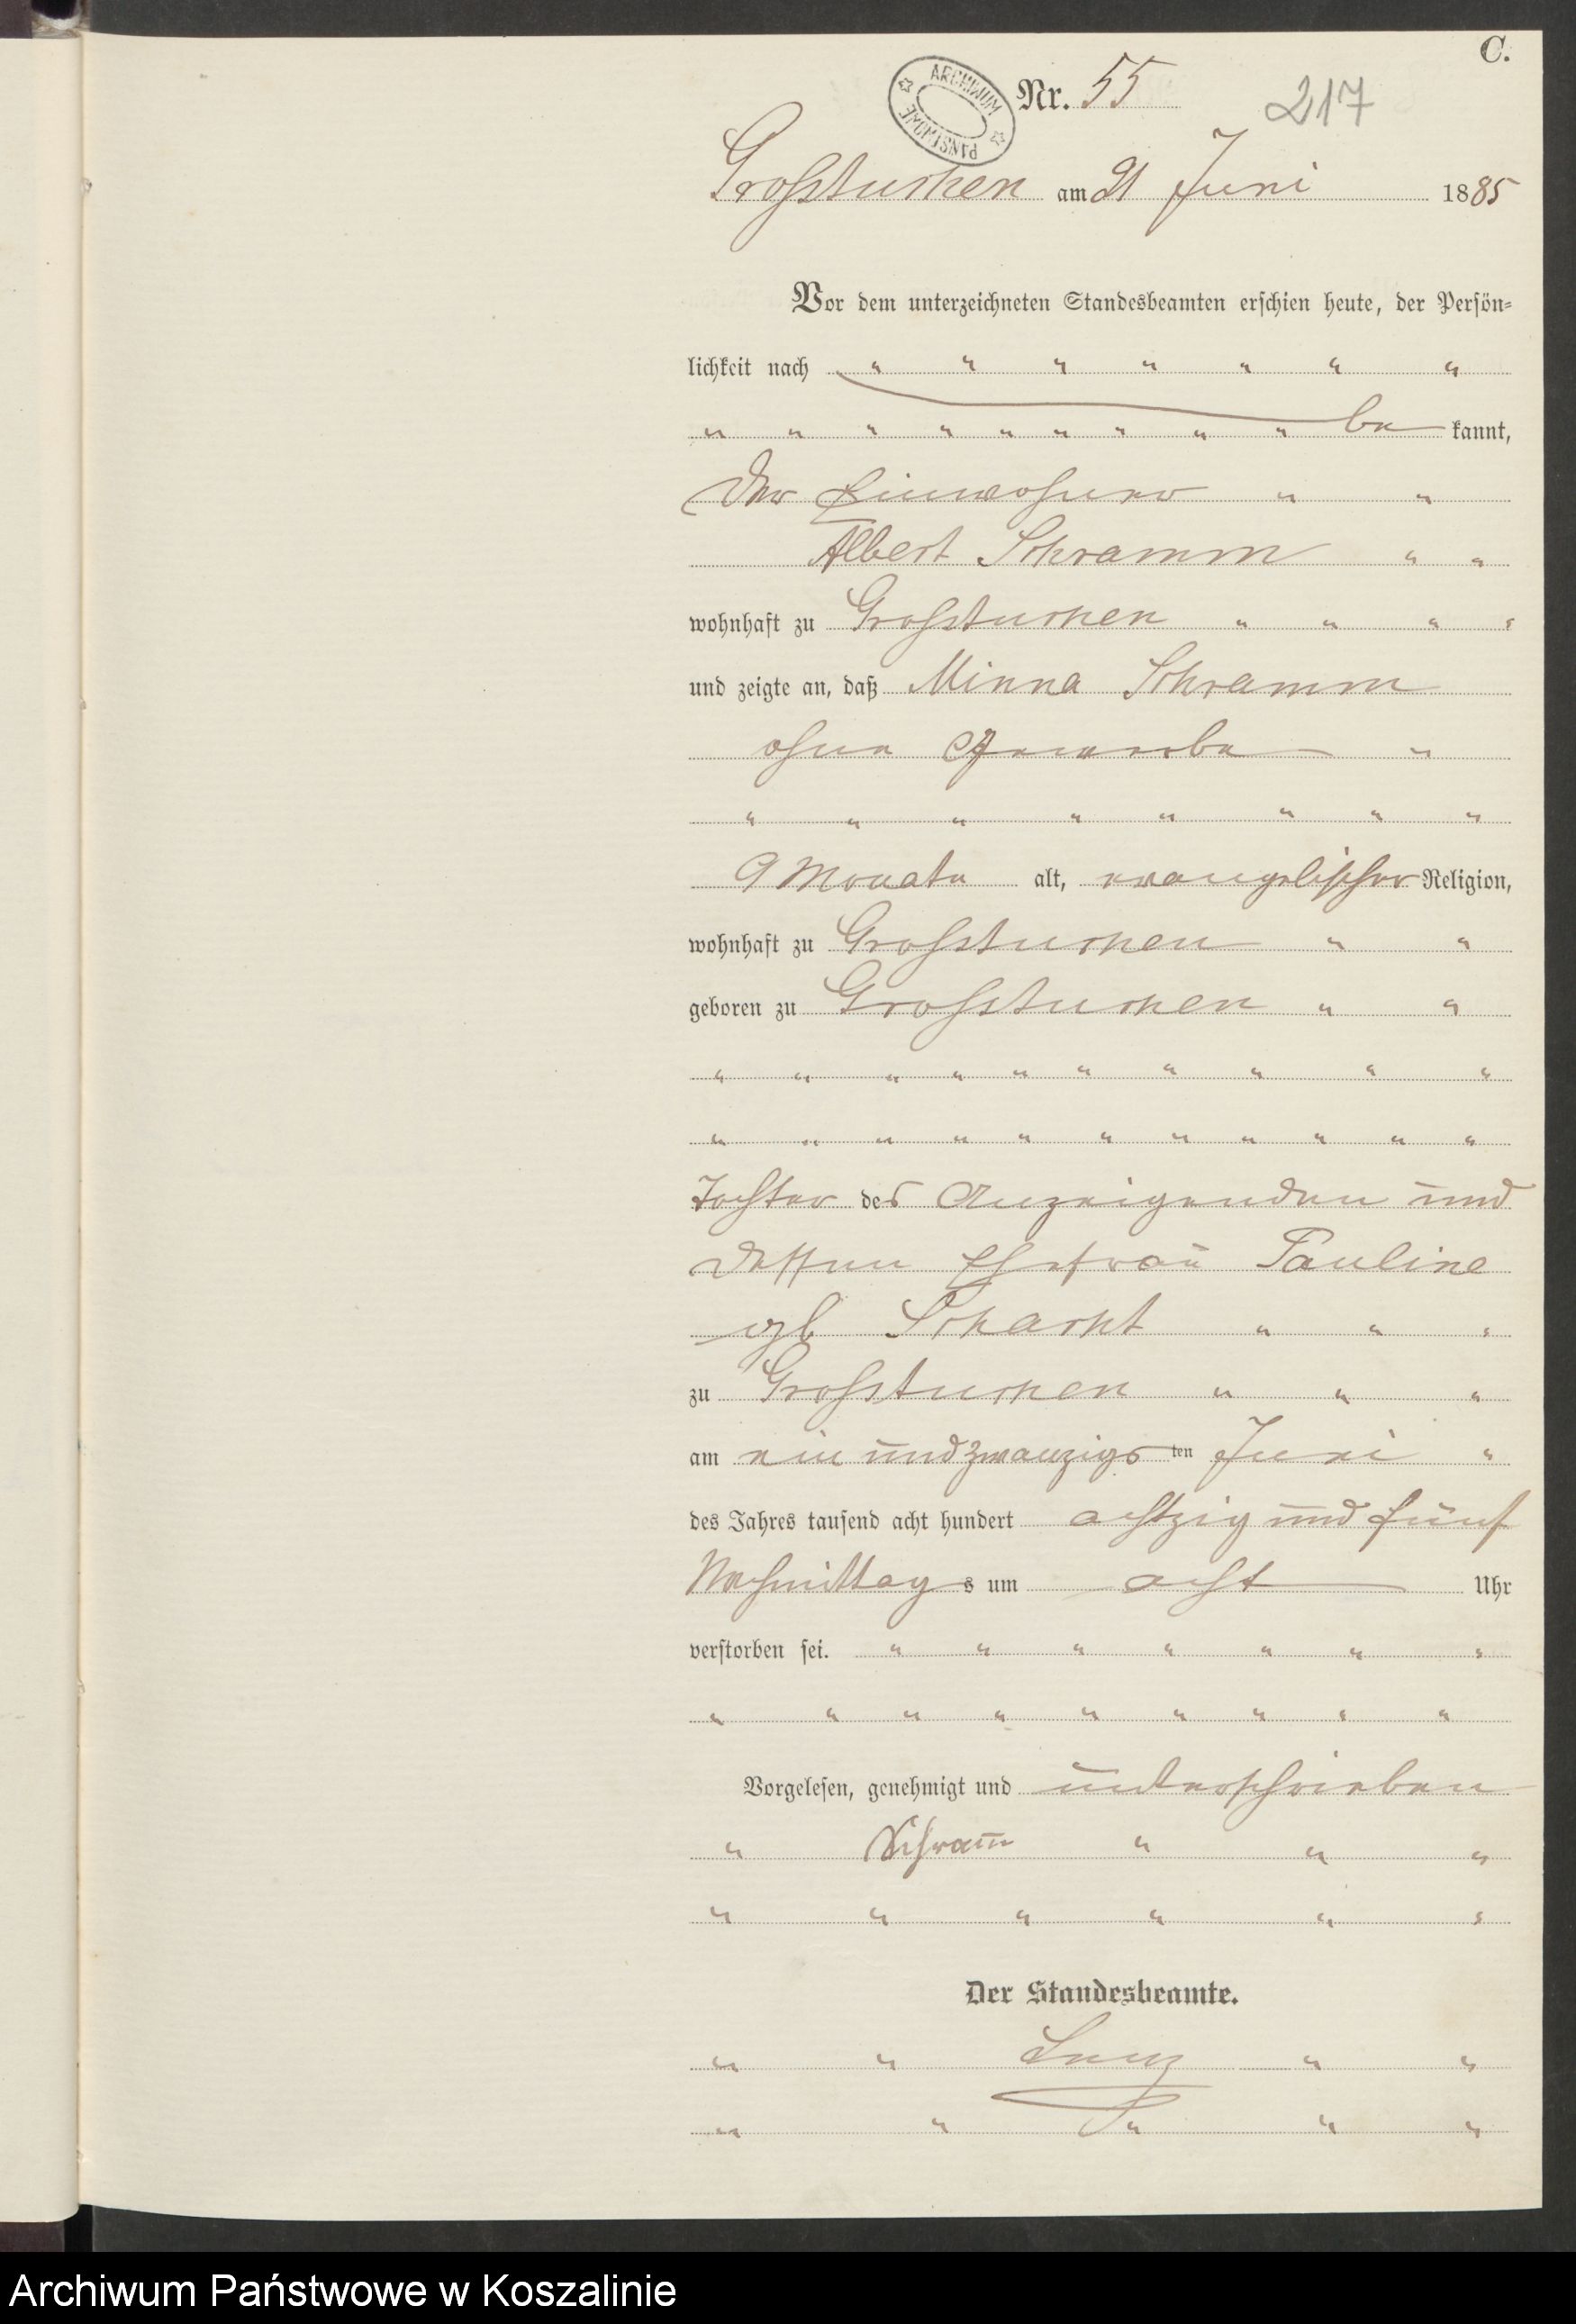 C.
ARCHIWUM PAŃSTWOWE
Nr. 55
217
Grosstuchen am 21 Juni 1885
Vor dem unterzeichneten Standesbeamten erschien heute, der Persön-
lichkeit nach " " " " " " "
" " " " " " " " " be kannt,
der Einwohner " "
Albert Schramm " "
wohnhaft zu Grosstuchen " " " "
und zeigte an, daß Minna Schramm
ohne Gewerbe "
" " " " " " " "
9 Monate alt, evangelischer Religion,
wohnhaft zu Grosstuchen " "
geboren zu Grosstuchen " "
" " " " " " " " " "
" " " " " " " " " " "
Tochter des Anzeigenden und
dessen Ehefrau Pauline
gb " " "
zu Grosstuchen " " "
am ein und zwanzigs ten Juni "
des Jahres tausend acht hundert achtzig und fünf
Nachmittags um acht Uhr
verstorben sei. " " " " " " "
" " " " " " " " "
Vorgelesen, genehmigt und unterschrieben
" Schram̅ " " "
" " " " " "
Der Standesbeamte.
" " " "
" " " " "
Archiwum Państwowe w Koszalinie